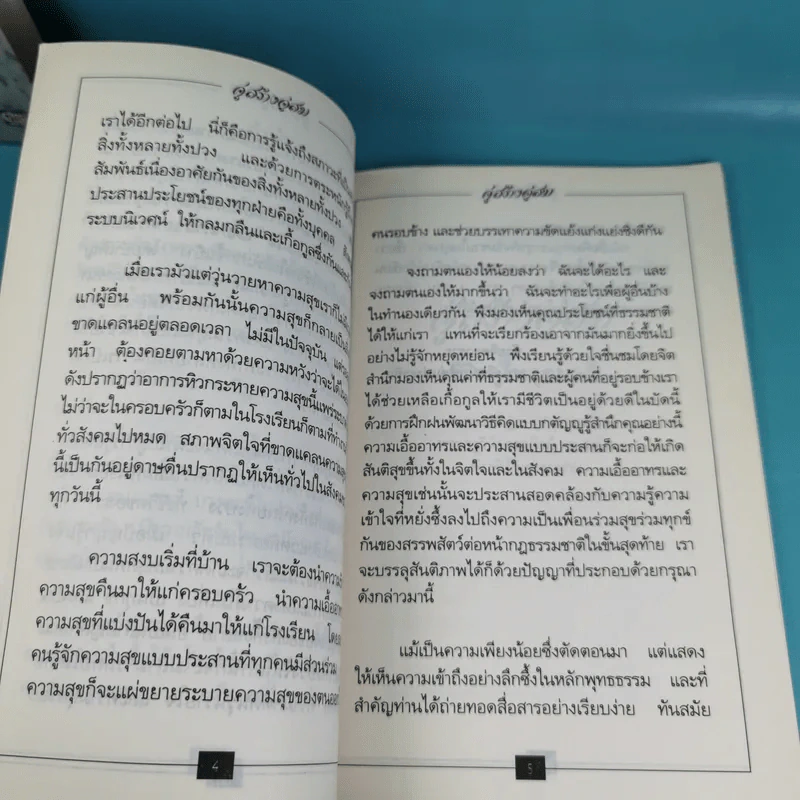 คู่สร้างคู่สม
เราได้อีกต่อไป นี่ก็คือการรู้แจ้งถึงสภาวะที่เป็น
สิ่งทั้งหลายทั้งปวง และด้วยการตระหนักรู้
สัมพันธ์เนื่องอาศัยกันของสิ่งทั้งหลายทั้งปวง
ประสานประโยชน์ของทุกฝ่ายคือทั้งบุคคล
ระบบนิเวศน์ ให้กลมกลืนและเกื้อกูลซึ่งกันและ
เมื่อเรามัวแต่วุ่นวายหาความสุขเราก็ไม่
แก่ผู้อื่น พร้อมกันนั้นความสุขก็กลายเป็น
ขาดแคลนอยู่ตลอดเวลา ไม่มีในปัจจุบัน
หน้า ต้องคอยตามหาด้วยความหวังว่าจะได้
ดังปรากฏว่าอาการหิวกระหายความสุขนี้แพร่
ไม่ว่าจะในครอบครัวก็ตามในโรงเรียนก็ตามที่ทำ
ทั่วสังคมไปหมด สภาพจิตใจที่ขาดแคลนความ
นี้เป็นกันอยู่ดาษดื่นปรากฏให้เห็นทั่วไปในสังคม
ทุกวันนี้
ความสงบเริ่มที่บ้าน เราจะต้องนำความ
ความสุขคืนมาให้แก่ครอบครัว นำความเอื้อ
ความสุขที่แบ่งปันได้คืนมาให้แก่โรงเรียน โดย
คนรู้จักความสุขแบบประสานที่ทุกคนมีส่วนร่วม
ความสุขก็จะแผ่ขยายระบายความสุขของตนออก
4
คู่สร้างคู่สม
คนรอบข้าง และช่วยบรรเทาความขัดแย้งแก่งแย่งชิงดีกัน
จงถามตนเองให้น้อยลงว่า ฉันจะได้อะไร และ
จงถามตนเองให้มากขึ้นว่า ฉันจะทำอะไรเพื่อผู้อื่นบ้าง
ในทำนองเดียวกัน พึงมองเห็นคุณประโยชน์ที่ธรรมชาติ
ได้ให้แก่เรา แทนที่จะเรียกร้องเอาจากมันมากยิ่งขึ้นไป
อย่างไม่รู้จักหยุดหย่อน พึงเรียนรู้ด้วยใจชื่นชมโดยจิต
สำนึกมองเห็นคุณค่าที่ธรรมชาติและผู้คนที่อยู่รอบข้างเรา
ได้ช่วยเหลือเกื้อกูลให้เรามีชีวิตเป็นอยู่ด้วยดีในบัดนี้
ด้วยการฝึกฝนพัฒนาวิธีคิดแบบกตัญญูรู้สำนึกคุณอย่างนี้
ความเอื้ออาทรและความสุขแบบประสานก็จะก่อให้เกิด
สันติสุขขึ้นทั้งในจิตใจและในสังคม ความเอื้ออาทรและ
ความสุขเช่นนั้นจะประสานสอดคล้องกับความรู้ความ
เข้าใจที่หยั่งซึ้งลงไปถึงความเป็นเพื่อนร่วมสุขร่วมทุกข์
กันของสรรพสัตว์ต่อหน้ากฎธรรมชาติในขั้นสุดท้าย เรา
จะบรรลุสันติภาพได้ก็ด้วยปัญญาที่ประกอบด้วยกรุณา
ดังกล่าวมานี้
แม้เป็นความเพียงน้อยซึ่งตัดตอนมา แต่แสดง
ให้เห็นความเข้าถึงอย่างลึกซึ้งในหลักพุทธธรรม และที่
สำคัญท่านได้ถ่ายทอดสื่อสารอย่างเรียบง่าย ทันสมัย
5